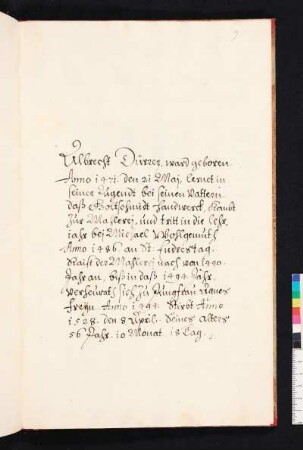 9
Albrecht Dürrer, ward geboren
Anno 1471. den 21 Maj. lernet in
seiner Jugendt bei seinen Vattern
daß Goltschmidt Handwerck,
Zur Mahlerej, und tritt in die Lehr
iahr bej Michael Wohlgemuth
Anno 1486 an St.
Raist der Mahlerej nach von 1490.
Jahr an, biß in daß 1494. Jahr,
Verheurath sich zu Jungfrau Agnes
Freyin. Anno 1494. Stirbt Anno
1528. den 8 April. Seines Alters
56 Jahr. 10 Monat 18 Tag.